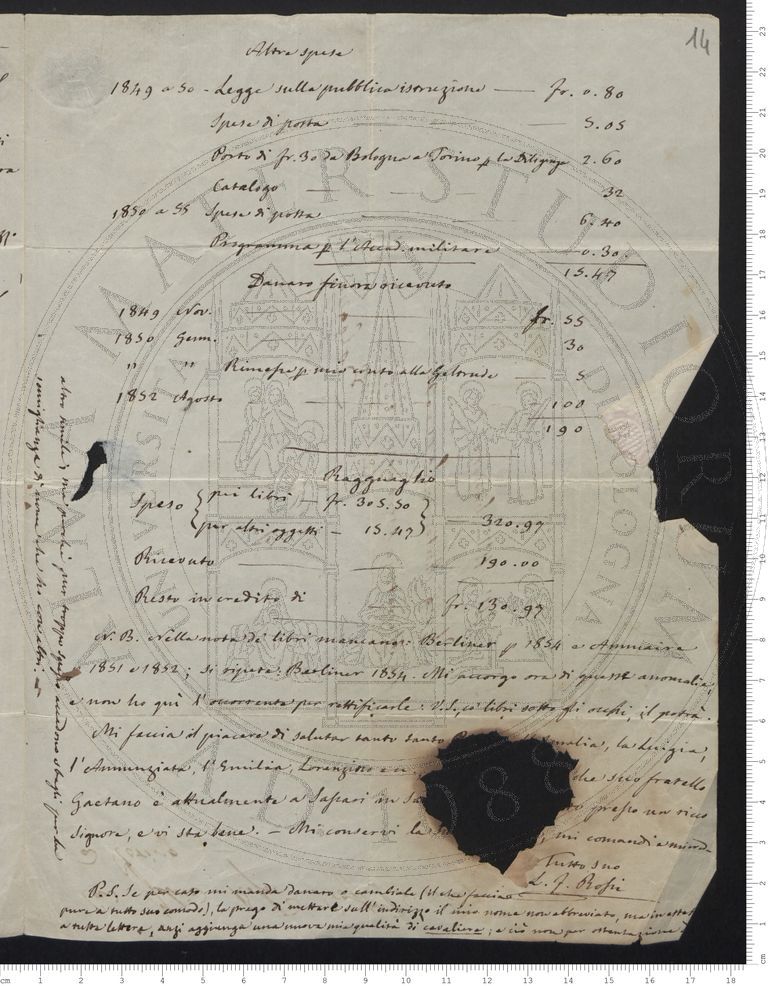 14
Altre spese
1849 a 50 - Legge sulla pubblica istruzione — fr. 0.80
Spese di posta 5.05
Porto di fr. 30 da Bologna a Torino p la Diligenza 2.60
Catalogo 32
1850 a 55 Spese di posta 6.40
Programma p l'Accad. militare 0.30
15.47
Danaro finora ricevuto
1849 Nov. fr. 55
1850 Genn. 30
" " Rimessa p mio conto alla Geltrude 5
1852 Agosto 100
190
Ragguaglio
Speso { pei libri — fr. 305.50 }
per altri oggetti — 15.47 } 320.97
Ricevuto 190.00
Resto in credito di fr. 130.97
N. B. Nella nota dei libri mancano: Berliner p 1854 e Annuaire
1851 e 1852; si ripete: Berliner 1854. Mi accorgo ora di queste anomalie,
e non ho quì l'occorrente per rettificarle: V.S., coi libri sotto gli occhi, il potrà.
Mi faccia il piacere di salutar tanto tanto Amalia, la Luigia,
l'Annunziata, l'Emilia, Lorenzino e che suo fratello
Gaetano è attualmente a Sassari in presso un ricco
signore, e vi sta bene. — Mi conservi la mi comandi e mi creda
Tutto suo
L. J. Rossi
P.S. Se per caso mi manda danaro o cambiale (il che faccia
pure a tutto suo comodo), la prego di mettere sull'indirizzo il mio nome non abbreviato, ma in
a tutte lettere, anzi aggiunga una nuova mia qualità di cavaliere; e ciò non per ostentazione
altro simile; ma perchè pur troppo spesso accadono sbagli per la
somiglianza di nome che ho con altri. —
ALMA MATER STUDIORUM
UNIVERSITÀ DI BOLOGNA
A.D. 1088